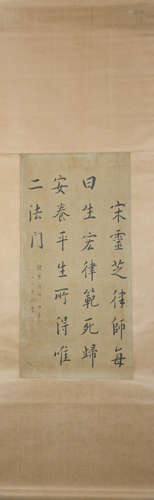 宋靈芝律師每
曰生宏律範死歸
安養平生所得唯
二法门